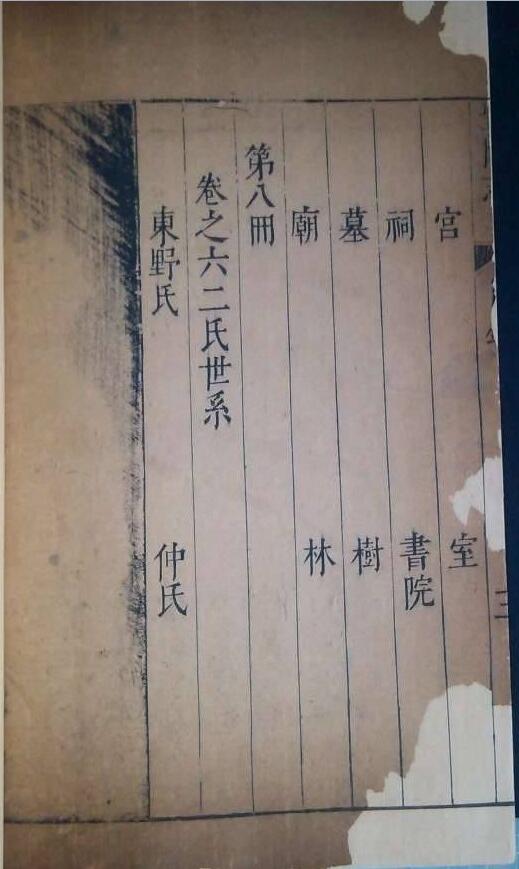 宮 室
祠 書院
墓 樹
廟 林
第八冊
卷之六二氏世系
東野氏 仲氏